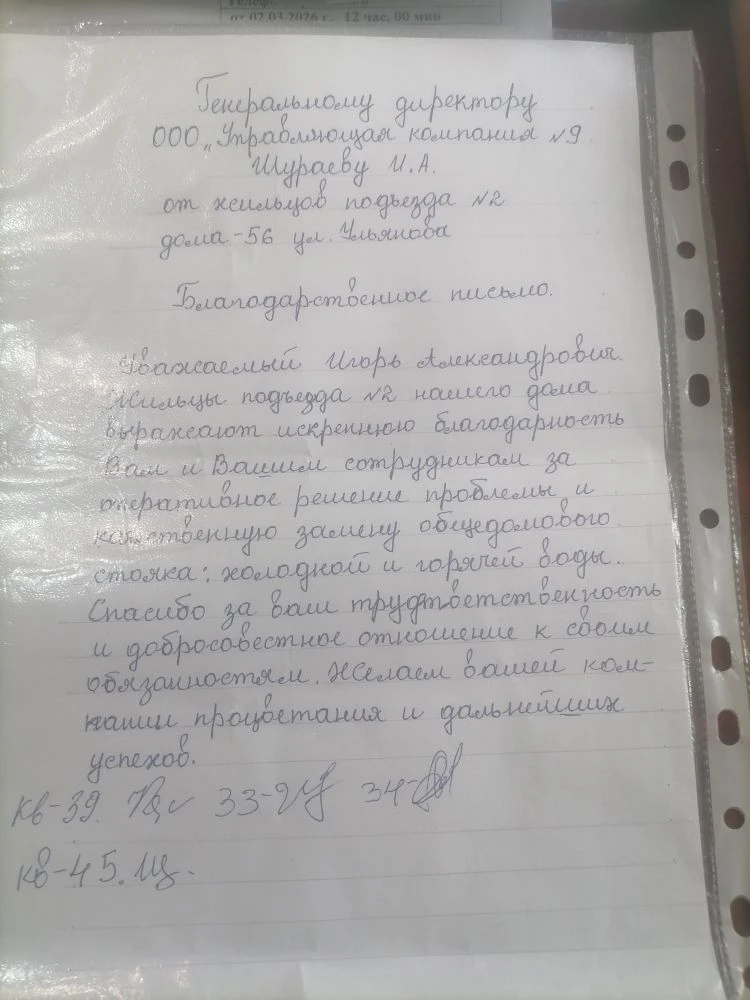 от 02.03.2026 г. 12 час. 00 мин
Генеральному директору
ООО „Управляющая компания №9
Шураеву И.А.
от жильцов подъезда №2
дома-56 ул. Ульянова
Благодарственное письмо.
Уважаемый Игорь Александрович.
Жильцы подъезда №2 нашего дома
выражают искреннюю благодарность
Вам и Вашим сотрудникам за
оперативное решение проблемы и
качественную замену общедомового
стояка: холодной и горячей воды.
Спасибо за ваш труд, ответственность
и добросовестное отношение к своим
обязанностям. Желаем вашей ком-
пании процветания и дальнейших
успехов.
кв-39. 33- 34-
кв-45.